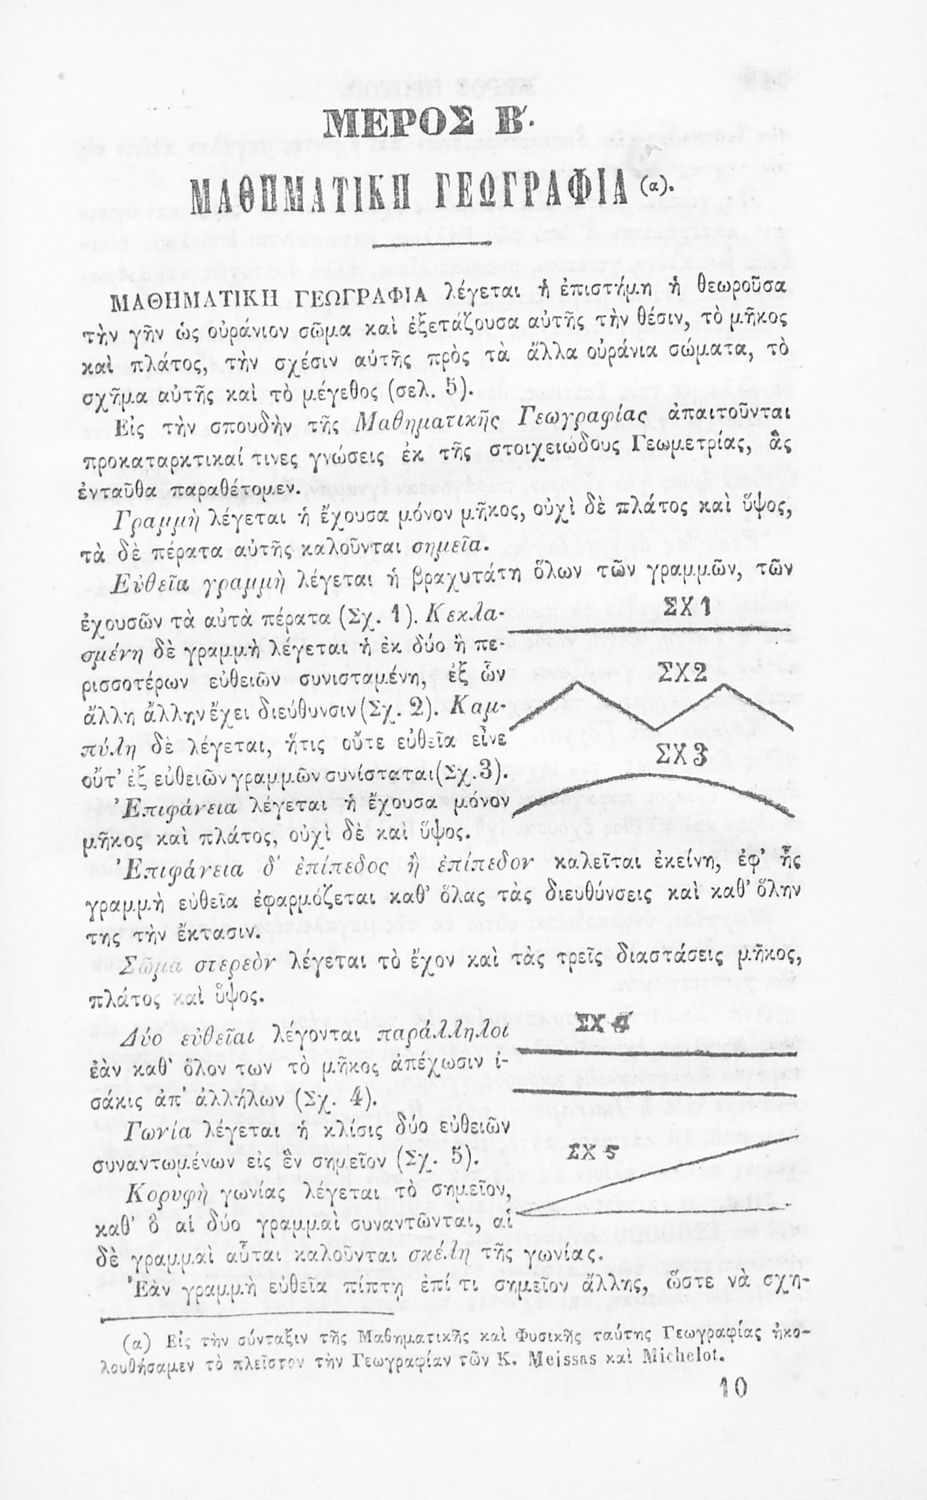 ΜΕΡΟΣ Β΄.
ΜΑΘΗΜΑΤΙΚΗ ΓΕΩΓΡΑΦΙΑ (α).
ΜΑΘΗΜΑΤΙΚΗ ΓΕΩΓΡΑΦΙΑ λέγεται ἡ ἐπιστήμη ἡ θεωροῦσα
τὴν γῆν ὡς οὐράνιον σῶμα καὶ ἐξετάζουσα αὐτῆς τὴν θέσιν, τὸ μῆκος
καὶ πλάτος, τὴν σχέσιν αὐτῆς πρὸς τὰ ἄλλα οὐράνια σώματα, τὸ
σχῆμα αὐτῆς καὶ τὸ μέγεθος (σελ. 5).
Εἰς τὴν σπουδὴν τῆς Μαθηματικῆς Γεωγραφίας ἀπαιτοῦνται
προκαταρκτικαί τινες γνώσεις ἐκ τῆς στοιχειώδους Γεωμετρίας, ἃς
ἐνταῦθα παραθέτομεν.
Γραμμὴ λέγεται ἡ ἔχουσα μόνον μῆκος, οὐχὶ δὲ πλάτος καὶ ὕψος,
τὰ δὲ πέρατα αὐτῆς καλοῦνται σημεῖα.
Εὐθεῖα γραμμὴ λέγεται ἡ βραχυτάτη ὅλων τῶν γραμμῶν, τῶν
ἐχουσῶν τὰ αὐτὰ πέρατα (Σχ. 1). Κεκλα-
σμένη δὲ γραμμὴ λέγεται ἡ ἐκ δύο ἢ πε-
ρισσοτέρων εὐθειῶν συνισταμένη, ἐξ ὧν
ἄλλη ἄλλην ἔχει διεύθυνσιν (Σχ. 2). Καμ-
πύλη δὲ λέγεται, ἥτις οὔτε εὐθεῖα εἶνε
οὔτ' ἐξ εὐθειῶν γραμμῶν συνίσταται (Σχ. 3).
Ἐπιφάνεια λέγεται ἡ ἔχουσα μόνον
μῆκος καὶ πλάτος, οὐχὶ δὲ καὶ ὕψος.
ΣΧ 1
ΣΧ 2
ΣΧ 3
Ἐπιφάνεια δ' ἐπίπεδος ἢ ἐπίπεδον καλεῖται ἐκείνη, ἐφ' ἧς
γραμμὴ εὐθεῖα ἐφαρμόζεται καθ' ὅλας τὰς διευθύνσεις καὶ καθ' ὅλην
της τὴν ἔκτασιν.
Σῶμα στερεὸν λέγεται τὸ ἔχον καὶ τὰς τρεῖς διαστάσεις μῆκος,
πλάτος καὶ ὕψος.
Δύο εὐθεῖαι λέγονται παράλληλοι
ἐὰν καθ' ὅλον των τὸ μῆκος ἀπέχωσιν ἰ-
σάκις ἀπ' ἀλλήλων (Σχ. 4).
Γωνία λέγεται ἡ κλίσις δύο εὐθειῶν
συναντωμένων εἰς ἓν σημεῖον (Σχ. 5).
Κορυφὴ γωνίας λέγεται τὸ σημεῖον,
καθ' ὃ αἱ δύο γραμμαὶ συναντῶνται, αἱ
ΣΧ 4
ΣΧ 5
δὲ γραμμαὶ αὗται καλοῦνται σκέλη τῆς γωνίας.
Ἐὰν γραμμὴ εὐθεῖα πίπτῃ ἐπί τι σημεῖον ἄλλης, ὥστε νὰ σχη-
(α) Εἰς τὴν σύνταξιν τῆς Μαθηματικῆς καὶ Φυσικῆς ταύτης Γεωγραφίας ἠκο-
λουθήσαμεν τὸ πλεῖστον τὴν Γεωγραφίαν τῶν Κ. Meissas καὶ Michelot.
10